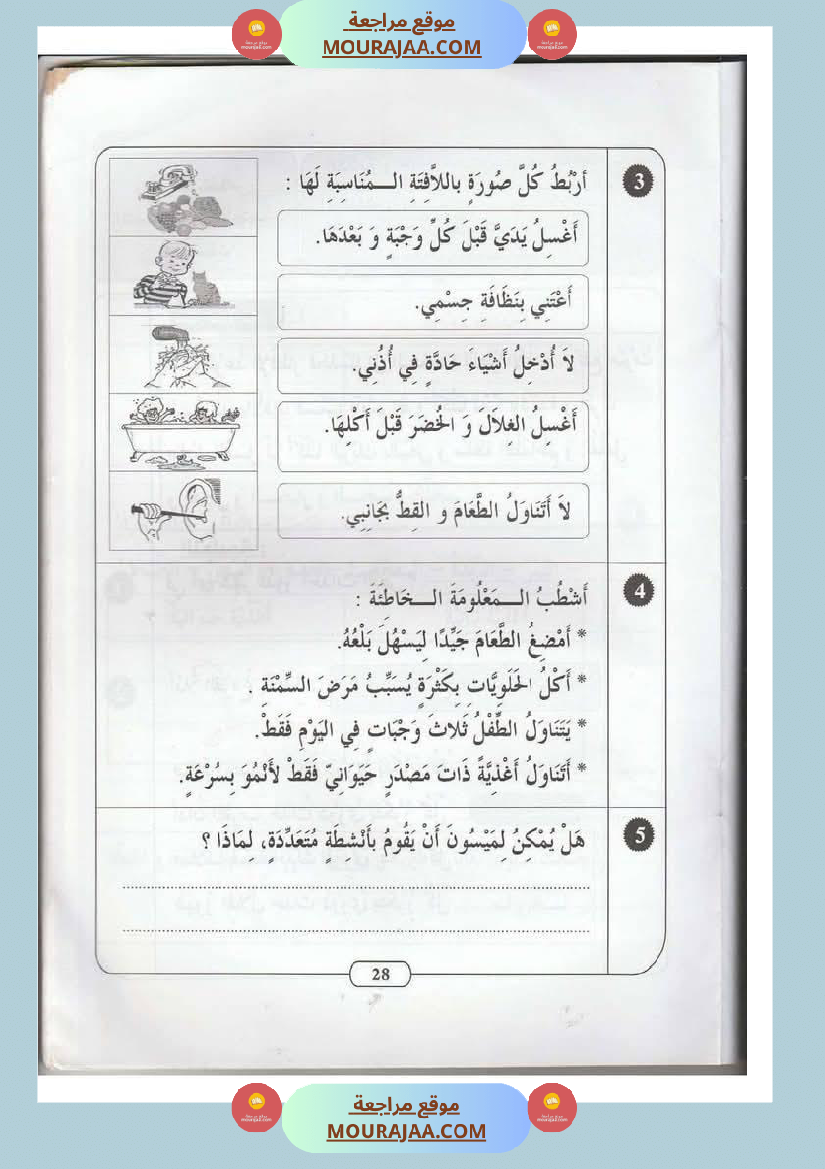 موقع مراجعة
MOURAJAA.COM
3
أرْبُطُ كُلَّ صُورَةٍ باللاَّفِتَةِ الـــمُنَاسِبَةِ لَهَا :
أَغْسِلُ يَدَيَّ قَبْلَ كُلِّ وَجْبَةٍ وَ بَعْدَهَا.
أَعْتَنِي بِنَظَافَةِ جِسْمِي.
لاَ أُدْخِلُ أَشْيَاءَ حَادَّةٍ فِي أُذُنِي.
أَغْسِلُ الغِلاَلَ وَ الخُضَرَ قَبْلَ أَكْلِهَا.
لاَ أَتَنَاوَلُ الطَّعَامَ و القِطُّ بِجَانِبِي.
4
أَشْطُبُ الـــمَعْلُومَةَ الـــخَاطِئَةَ :
* أَمْضِغُ الطَّعَامَ جَيِّدًا لِيَسْهُلَ بَلْعُهُ.
* أَكْلُ الحَلَوِيَّاتِ بِكَثْرَةٍ يُسَبِّبُ مَرَضَ السِّمْنَةِ .
* يَتَنَاوَلُ الطِّفْلُ ثَلاثَ وَجْبَاتٍ فِي اليَوْمِ فَقَطْ.
* أَتَنَاوَلُ أَغْذِيَّةً ذَاتَ مَصْدَرٍ حَيَوَانِيّ فَقَطْ لأَنْمُوَ بِسُرْعَةٍ.
5
هَلْ يُمْكِنُ لِمَيْسُونَ أَنْ يَقُومُ بأَنْشِطَةٍ مُتَعَدِّدَةٍ، لِمَاذَا ؟
28
موقع مراجعة
MOURAJAA.COM